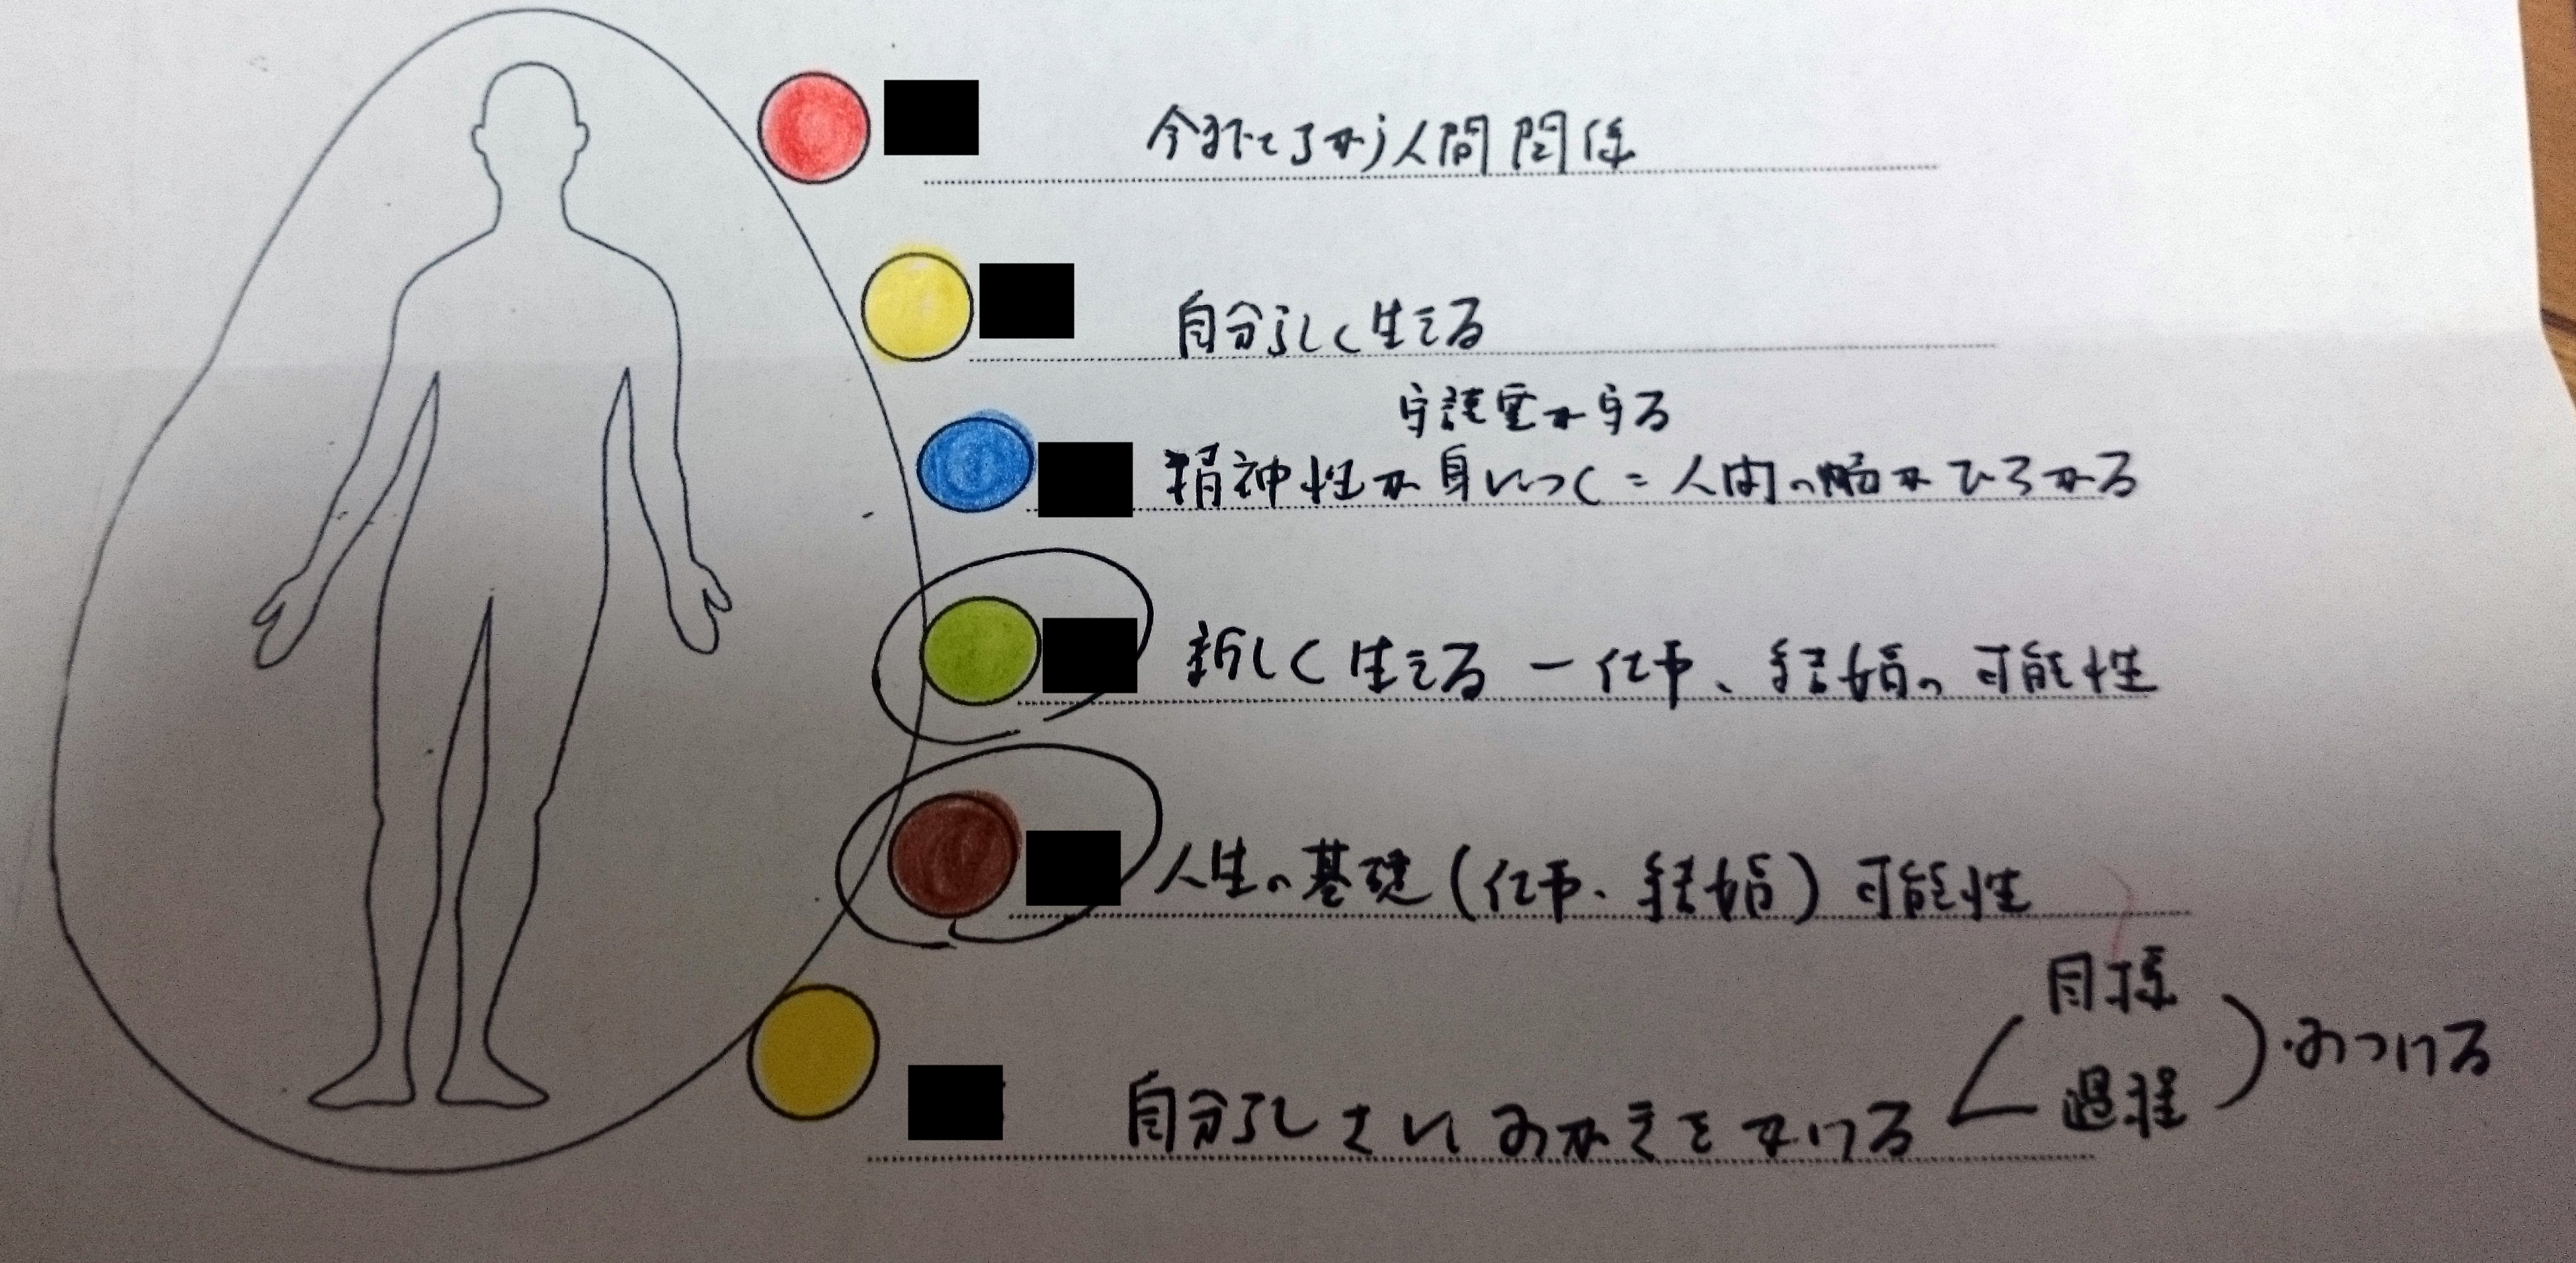 今までとちがう人間関係
自分らしく生きる
守護霊が守る
精神性が身につく=人間の幅がひろがる
新しく生きる ー 仕事、結婚の可能性
人生の基礎(仕事、結婚)可能性
目標
自分らしさに みがきをかける 過程 みつける